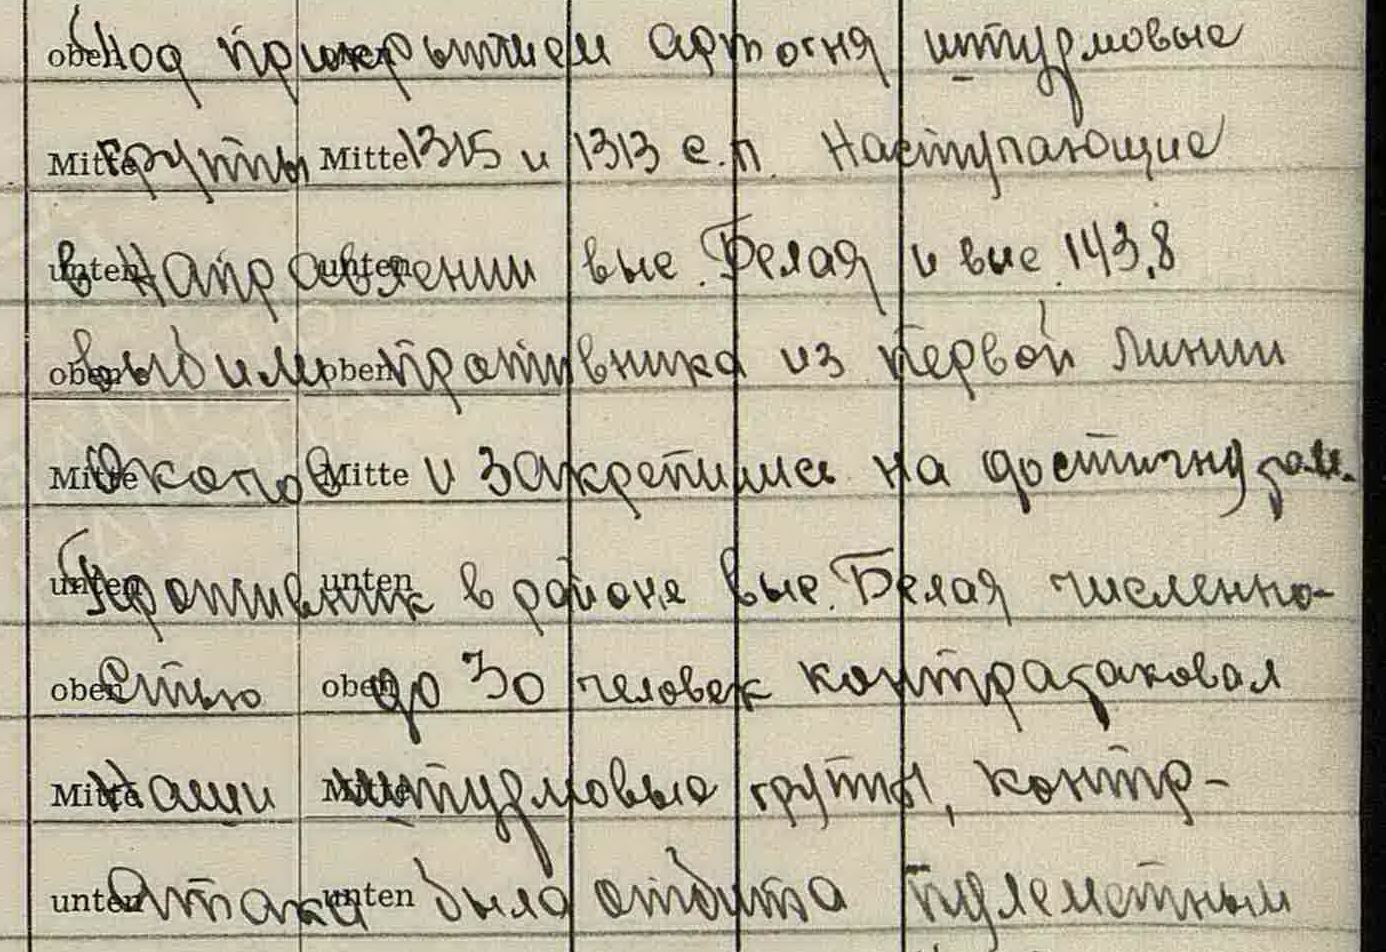 oben Под прикрытием oben артогня штурмовые
Mitte группы Mitte 1315 и 1313 с.п. Наступающие
unten в направлении unten выс. Белая и выс. 143,8
oben выбили oben противника из первой линии
Mitte окопов Mitte и закрепились на достигну
unten Противник unten в районе выс. Белая численно-
oben стью oben до 30 человек контратаковал
Mitte наши Mitte штурмовые группы, контр-
unten атака unten была отбита пулеметным